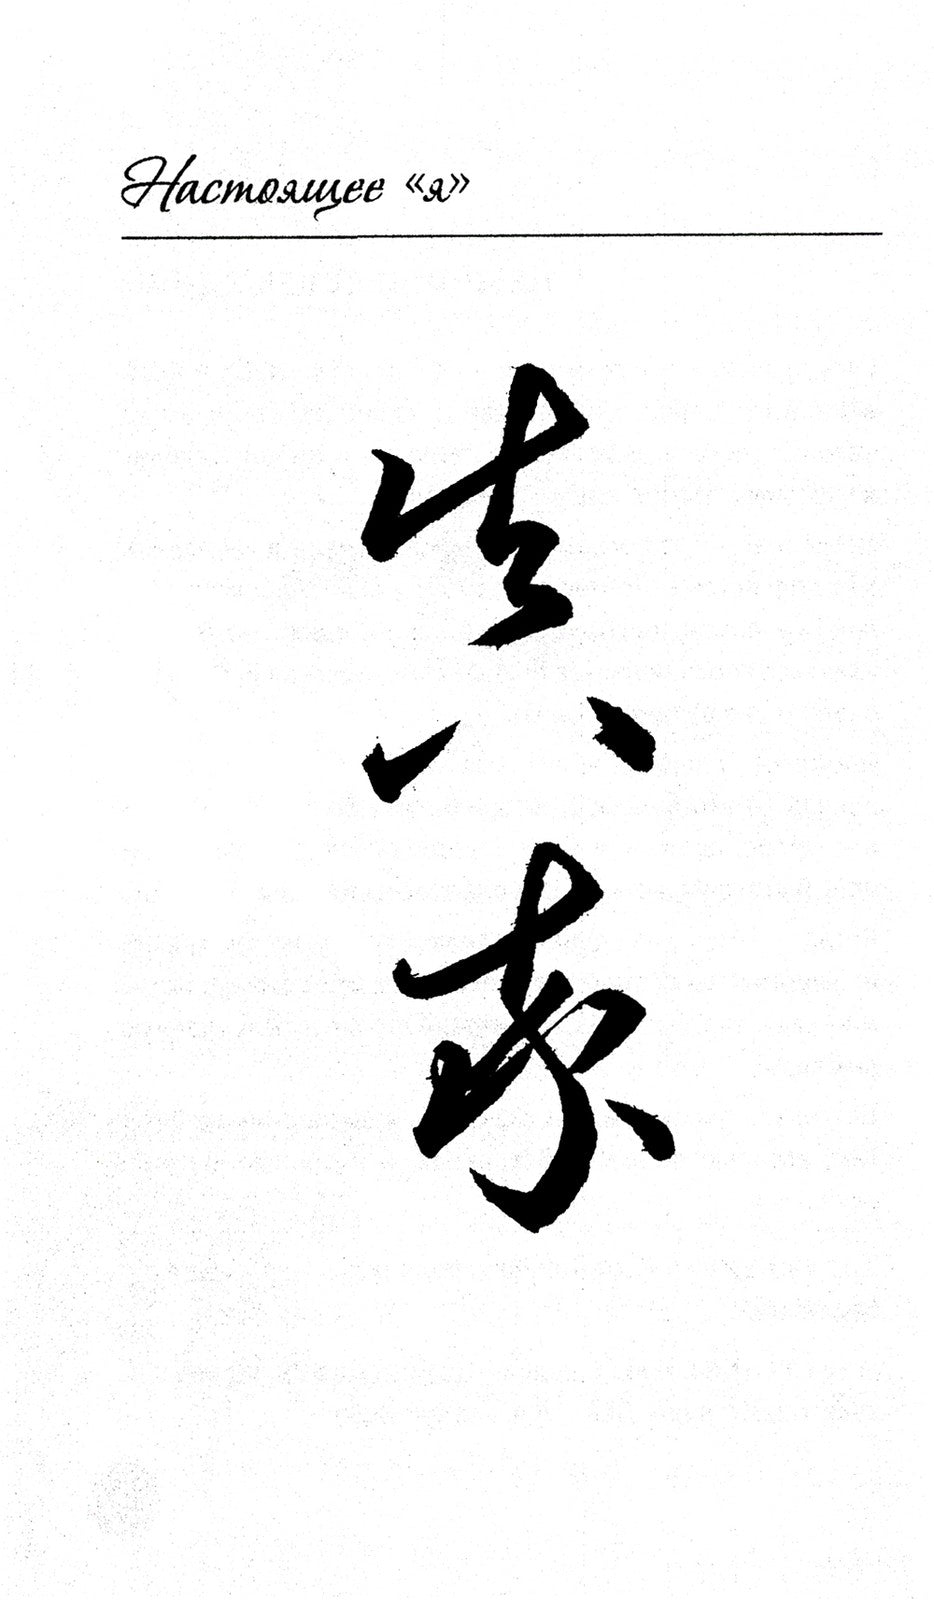 Настоящее «я»
真
我